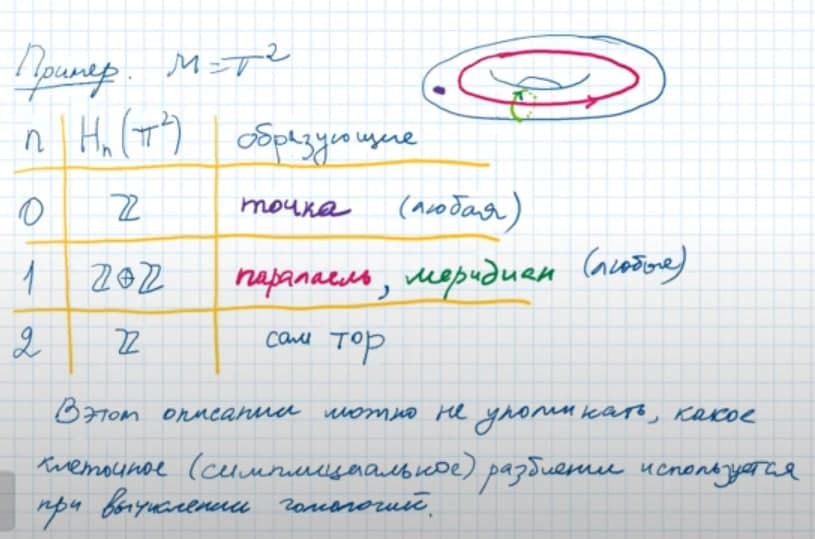 Пример. M = T²
n | Hₙ(T²) | образующие
0 | ℤ | точка (любая)
1 | ℤ⊕ℤ | параллель, меридиан (любые)
2 | ℤ | сам тор
В этом описании можно не упоминать, какое
клеточное (симплициальное) разбиение используется
при вычислении гомологий.